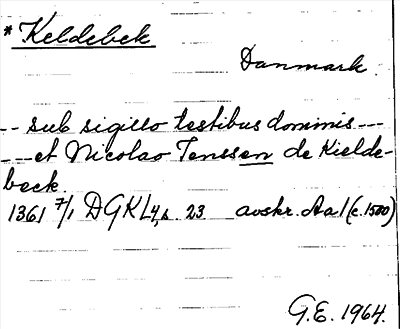 * Keldebek
Danmark.
-- sub sigillo testibus dominis ---
--- et Nicolao Tenssen de Kielde-
beck.
1361 7/1 DGKL4, s. 23 avskr. Aa1 (c. 1500)
G.E. 1964.